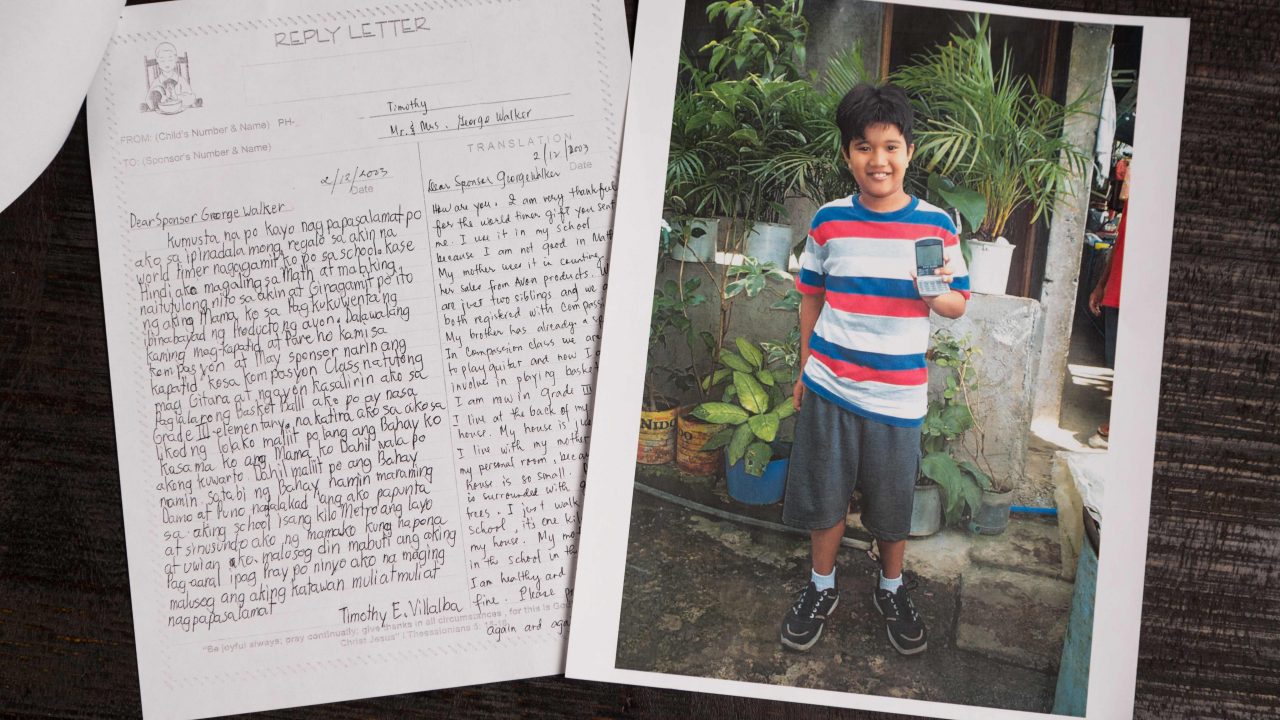 REPLY LETTER
FROM: (Child's Number & Name) PH-
Timothy
TO: (Sponsor's Number & Name)
Mr. & Mrs. George Walker
2/12/2003
Date
Dear Sponsor George Walker
Kumusta na po kayo nag papasalamat po
ako sa ipinadala mong regalo sa akin na
world timer nagagamit ko po sa school kase
Hindi ako magaling sa Math at malaking
naitutulong nito sa akin at Ginagamit po ito
ng aking Mama ko sa Pag kukuwenta ng
binabayad ng Producto ng avon. Dalawalang
kaming mag-kapatid at Pare ho kami sa
kompasyon at May sponsor narin ang
kapatid kosa kompasyon Class natutong
mag Gitara at ngayon kasalirin ako sa
Paglalaro ng Basket ball ako po ay nasa
Grade III-elementary, nakatira ako sa
likod ng lolako maliit palang ang Bahay ko
kasama ko ang Mama ko Dahil wala po
akong kuwarto. Dahil maliit po ang Bahay
namin sa tabi ng Bahay namin maraming
Damo at Puno, naglalakad lang ako papunta
sa aking school isang kilo Metro ang layo
at sinusundo ako ng mamako kung hapona
at uwian ako. malosog din mabuti ang aking
Pag-aaral ipag Pray po ninyo ako na maging
malusog ang aking katawan muli at muli at
nagpapasalamat
Timothy E. Villalba
TRANSLATION
2/12/2003
Date
Dear Sponsor George Walker
How are you. I am very thankful
for the world timer gift you sent
me. I use it in my school
because I am not good in Math
My mother uses it in counting
her sales from Avon products. We
are just two siblings and we a
both registered with Compass
My brother has already a
In compassion class we are
to play guitar and now I
involve in playing bask
I am now in Grade III
I live at the back of my
house. My house is ju
I live with my mother
my personal room, beca
house is so small.
is surrounded with
trees. I just walk
school, it's one ki
my house. My mo
in the school in th
I am healthy and
fine. Please p
again and aga
"Be joyful always; pray continually; give thanks in all circumstances, for this is God
Christ Jesus" I Thessalonians 5: 16-18
NIDO